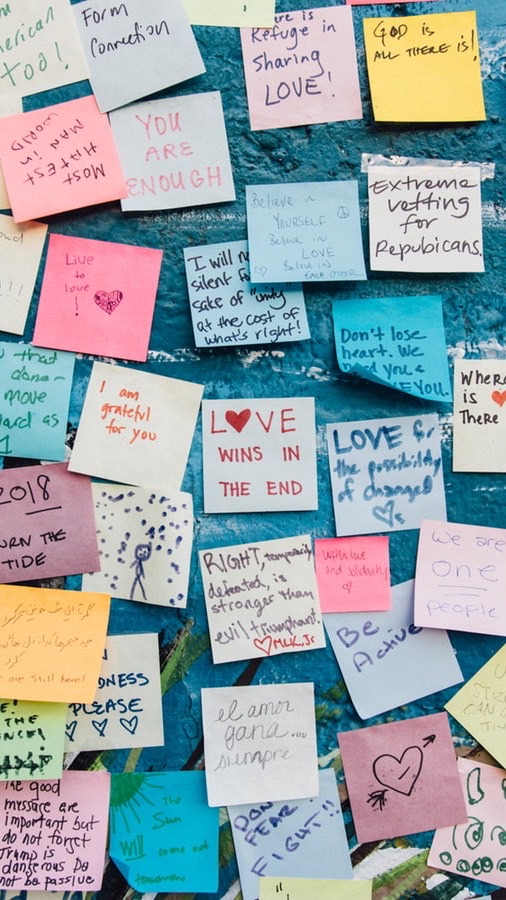 merican
too!
Form
Connection
There is
Refuge in
Sharing
LOVE!
GOD is
ALL THERE is!
MOST
HATEST
MAN in
WORLD
YOU
ARE
ENOUGH
Believe in
YOURSELF
Believe in
LOVE
Believe in
EACH OTHER
Extreme
vetting
for
Repubicans.
Live
to
love
!
I will n
silent f
sake of "unity"
at the cost of
what's right!
Don't lose
heart. We
need you &
LOVE YOU.
that
done-
move
ard as
I am
grateful
for you
LOVE
WINS IN
THE END
LOVE for
the possibility
of changed
s
Where
is
There
2018
URN THE
TIDE
RIGHT, temporarily
defeated, is
stronger than
evil triumphant.
MLK, Jr
With love
and solidarity
We are
one
people
Be
Active
me still here!
DNESS
PLEASE
THE
NCE!
el amor
gana...
siempre
The good
message are
important but
do not forget
Trump is
dangerous Do
not be passive
The
Sun
will come out
tomorrow
DON'T
FEAR
FIGHT!!
U
STR
CAN
TH